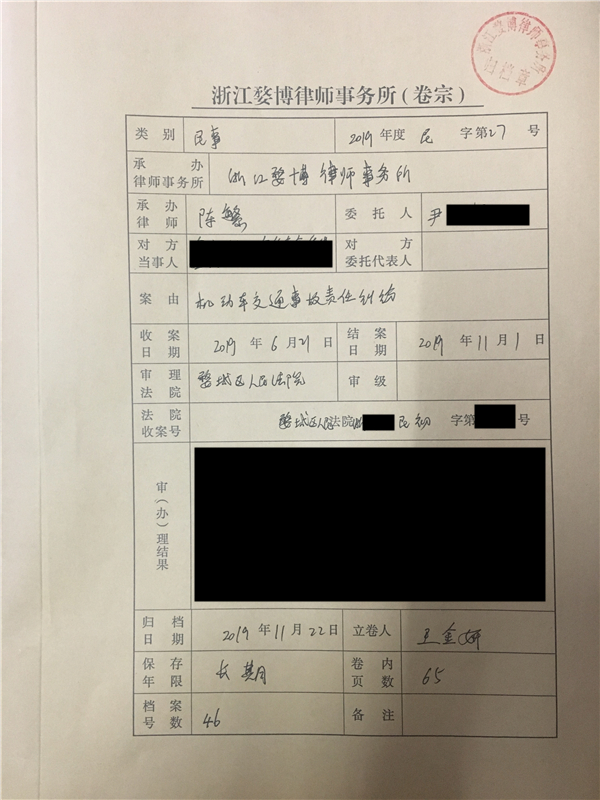 浙江婺博律师事务所
归档章
浙江婺博律师事务所(卷宗)
类别 民事 2019 年度 民 字第 27 号
承办律师事务所 浙江婺博律师事务所
承办律师 陈 委托人 尹
对方当事人 对方委托代表人
案由 机动车交通事故责任纠纷
收案日期 2019 年 6 月 21 日 结案日期 2019 年 11 月 1 日
审理法院 婺城区人民法院 审级
法院收案号 婺城区人民法院 民初 字第 号
审(办)理结果
归档日期 2019 年 11 月 22 日 立卷人 王金妍
保存年限 长期 卷内页数 65
档案号数 46 备注